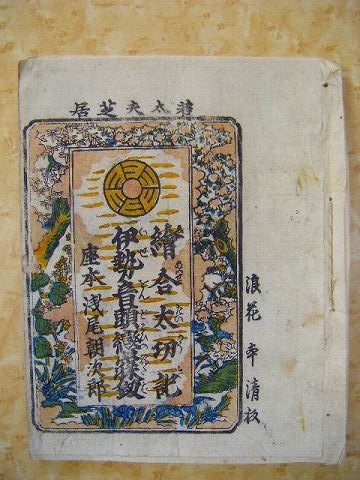 若太夫芝居
繪合太功記
伊勢音頭戀寝釼
座本 浅尾朝次郎
浪花 本清板